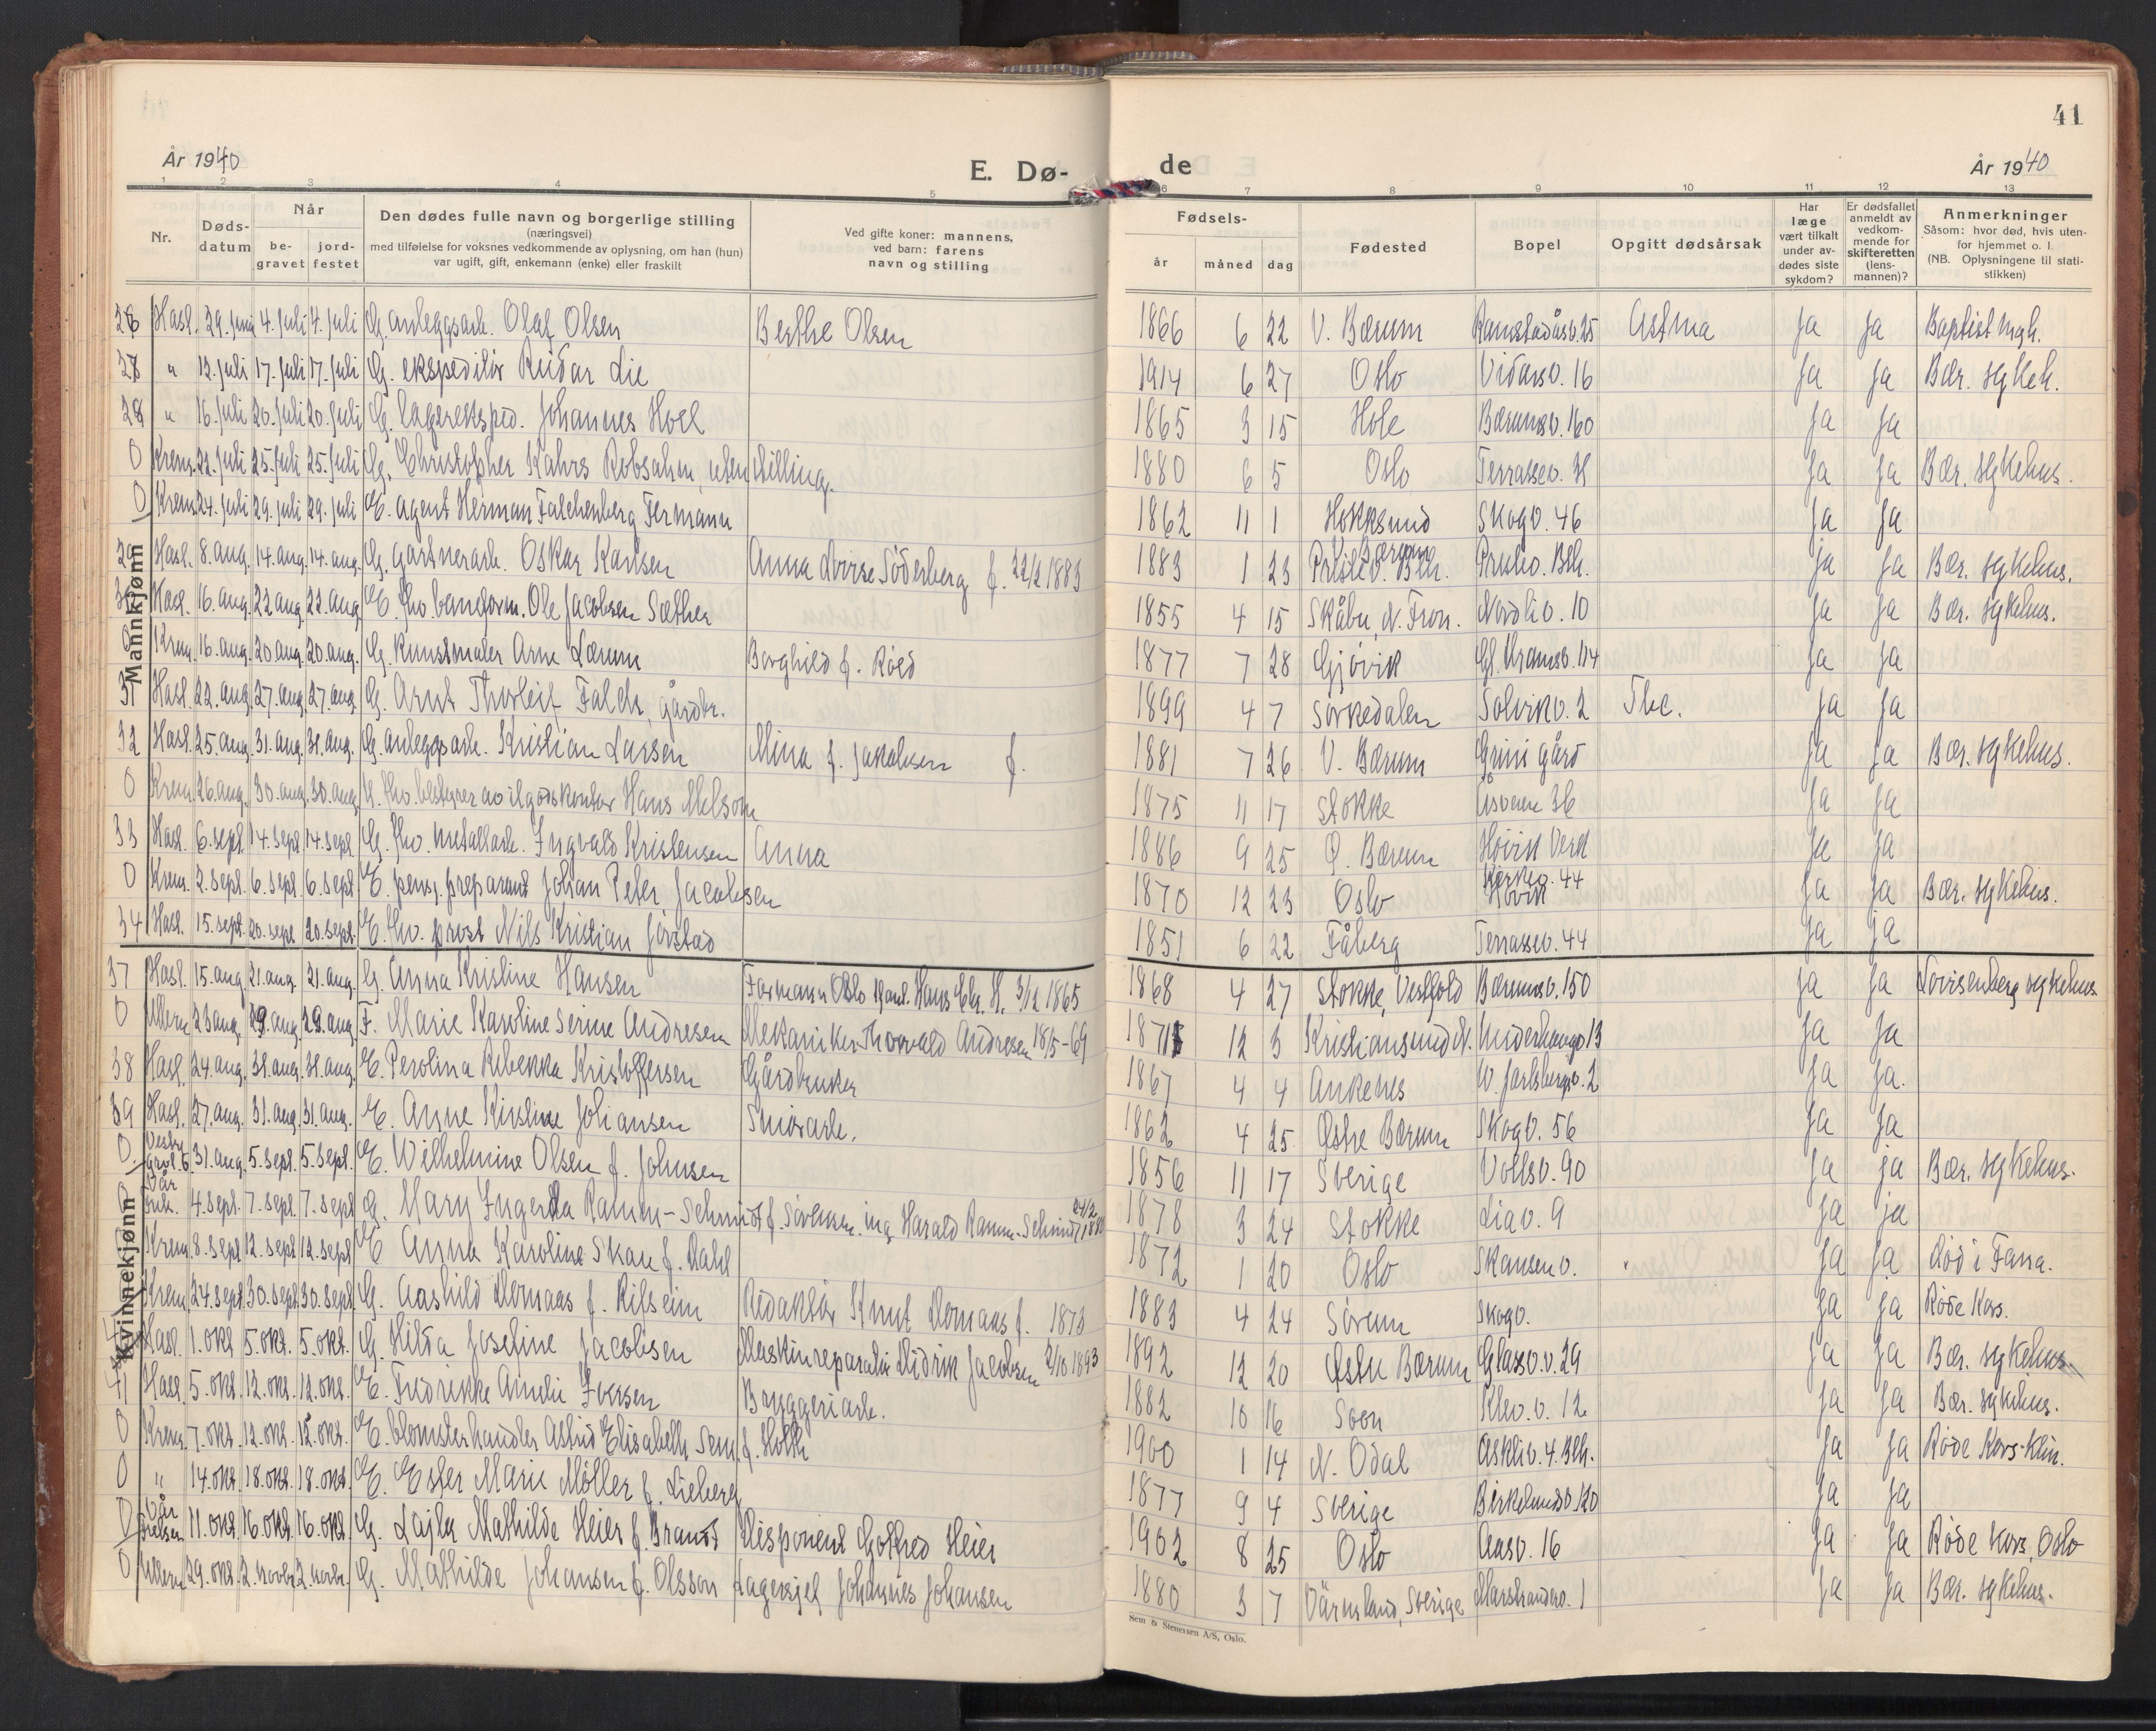 41
År 1940
E. Dø-
de
År 1940
1 2 3 4 5 6 7 8 9 10 11 12 13
Nr.
Døds-
datum
Når
be-
gravet
jord-
festet
Den dødes fulle navn og borgerlige stilling
(næringsvei)
med tilføielse for voksnes vedkommende av oplysning, om han (hun)
var ugift, gift, enkemann (enke) eller fraskilt
Ved gifte koner: mannens,
ved barn: farens
navn og stilling
Fødsels-
år
måned
dag
Fødested
Bopel
Opgitt dødsårsak
Har
læge
vært tilkalt
under av-
dødes siste
sykdom?
Er dødsfallet
anmeldt av
vedkom-
mende for
skifteretten
(lens-
mannen)?
Anmerkninger
Såsom: hvor død, hvis uten-
for hjemmet o. l.
(NB. Oplysningene til stati-
stikken)
Mannkjønn
Hasl. 4. juli 4. juli G. anleggsarb. Olaf Olsen Berthe Olsen 1866 6 22 V. Bærum Ramstadåsv. 25 Astma Ja Ja Baptist mgh.
28 " 12. juli 17. juli 17. juli G. ekspeditør Reidar Lie 1914 6 27 Oslo Vidarsv. 16 Ja Ja Bær. sykeh.
28 " 16. juli 20. juli 20. juli G. lagerekspd. Johannes Hoel 1865 3 15 Hole Bærumsv. 160 Ja Ja
0 Krem. 22. juli 25. juli 25. juli G. Christopher Kahrs Robsahm, uten stilling. 1880 6 5 Oslo Terrassev. Ja Ja Bær. sykehus.
0 Krem. 24. juli 29. juli 29. juli E. agent Herman Falchenberg Fermann 1862 11 1 Hokksund Skogv. 46 Ja Ja
29 Hasl. 8. aug. 14. aug. 14. aug. G. gartnerarb. Oskar Karlsen Anna Lovise Söderberg f. 22/2 1883 1883 1 23 Blh. Bærum Blh. Ja Ja Bær. sykehus.
30 Hasl. 16. aug. 22. aug. 22. aug. E. fhv. baneform. Ole Jacobsen Sæther 1855 4 15 Skåbu, N. Fron. Nordliv. 10 Ja Ja Bær. sykehus.
0 Krem. 16. aug. 20. aug. 20. aug. G. Kunstmaler Arne Lærum Borghild f. Röed 1877 7 28 Gjövik Gl. 114 Ja Ja
31 Hasl. 22. aug. 27. aug. 27. aug. G. Arnt Thorleif Falch, gårdbr. 1899 4 7 Sörkedalen Solvikv. 2 Tbc. Ja Ja
32 Hasl. 25. aug. 31. aug. 31. aug. G. anleggsarb. Kristian Larsen Mina f. Jakobsen f. 1881 7 26 V. Bærum Grini gård Ja Ja Bær. sykehus.
0 Krem. 26. aug. 30. aug. 30. aug. fhv. bestyrer av ilgodskontor Hans Melsom 1875 11 17 Stokke Åsveien 36 Ja Ja
33 Hasl. 6. sept. 14. sept. 14. sept. G. fhv. metallarb. Ingvald Kristensen Anna 1886 9 25 Ö. Bærum Hövik Verk Ja Ja
0 Krem. 2. sept. 6. sept. 6. sept. E. pensj. preparant Johan Peter Jacobsen 1870 12 23 Oslo Kirkev. 44 Hövik Ja Ja Bær. sykehus.
34 Hasl. 15. sept. 20. sept. 20. sept. E. fhv. prost Nils Kristian Jörstad 1851 6 22 Fåberg Terrassev. 44 Ja Ja
Kvinnekjønn
37 Hasl. 15. aug. 21. aug. 21. aug. G. Anna Kristine Hansen Formann Oslo Hans Chr. H. 3/12 1865 1868 4 27 Stokke, Vestfold Bærumsv. 150 Ja Ja Lovisenberg sykehus
0 Ullern 23. aug. 29. aug. 29. aug. F. Marie Karoline Serine Andresen Mekaniker Thorvald Andresen 18/5-69 12 3 Kristiansund N. Underhaugv. 13 Ja Ja
38 Hasl. 24. aug. 31. aug. 31. aug. E. Perolina Rebekka Kristoffersen Gårdbruker 1867 4 4 Ankenes W. Jarlsbergsv. 2 Ja Ja.
39 Hasl. 27. aug. 31. aug. 31. aug. E. Anne Kirstine Johansen 1862 4 25 Östre Bærum Skogv. 56 Ja Ja
0 Vestre gravl. 31. aug. 5. sept. 5. sept. E. Wilhelmine Olsen f. Johnsen 1856 11 17 Sverige Vollsv. 90 Ja ja Bær. sykehus.
Vår 4. sept. 7. sept. 7. sept. G. Mary Ramm-Schmidt f. Sörensen. ing. Harald Ramm-Schmidt 1878 3 24 Stokke Liav. 9 Ja ja
Krem. 8. sept. 12. sept. 12. sept. E. Anna Karoline Skau f. Dahl 1872 1 20 Oslo Skansenv. Ja Ja död i Fana.
Krem. 24. sept. 30. sept. 30. sept. G. Aashild Domaas f. Redaktör Knut Domaas f. 1873 1883 4 24 Sörum Skogv. Ja ja Röde Kors.
Hasl. 1. okt. 5. okt. 5. okt. G. Hilda Josefine Jacobsen Maskinreparatör Didrik Jacobsen 2/10 1893 1892 12 20 Östre Bærum Glassv. v. 29 Ja Ja Bær. sykehus
41 Hasl. 5. okt. 12. okt. 12. okt. E. Fredrikke Amalie Iversen Bryggeriarb. 1882 10 16 Klev. v. 12 Ja Ja Bær. sykehus.
0 Krem. 7. okt. 12. okt. 12. okt. E. blomsterhandler Astrid Elisabeth Sem f. Holth 1900 1 14 N. Odal Askliv. 4. Blh. Ja Ja Röde Kors-Klin.
0 " 14. okt. 18. okt. 18. okt. E. Ester Marie Möller f. Lieberg 1877 9 4 Sverige Birkelundv. Ja Ja
0 Vår Frelser 11. okt. 16. okt. 16. okt. G. Lajla Mathilde Heier f. Brandt Disponent Gotfred Heier 1902 8 25 Oslo Aasv. 16 Ja Ja Röde Kors, Oslo
0 Ullern 29. okt. 2. novbr. 2. novbr. G. Mathilde Johansen f. Olsson Lagersjef Johannes Johansen 1880 3 7 Värmland, Sverige Marstranderv. 1 Ja Ja Bær. sykehus.
Sem & Stenersen A/S, Oslo.